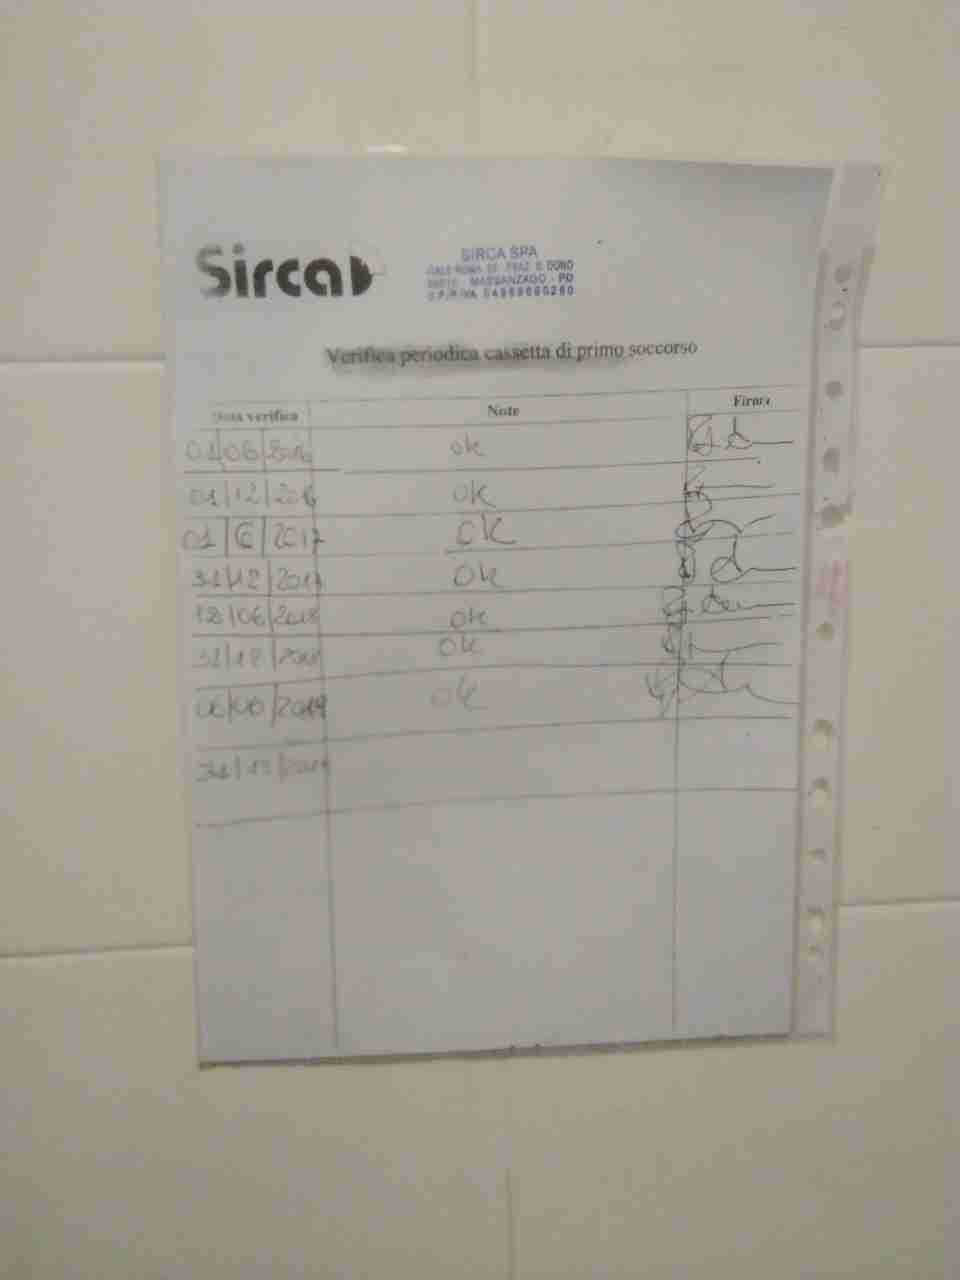 Sirca
SIRCA SPA
VIALE ROMA 85 FRAZ. S. DONO
MASSANZAGO - PD
Verifica periodica cassetta di primo soccorso
Data verifica Note Firma
01/06/2016 ok
01/12/2016 ok
01/6/2017 ok
31/12/2017 ok
18/06/2018 ok
31/12/2018 ok
06/06/2019 ok
31/12/2019